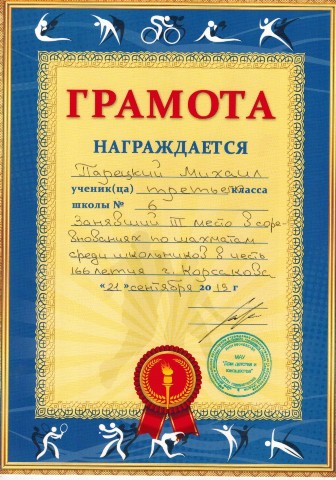 ГРАМОТА
НАГРАЖДАЕТСЯ
Парецкий Михаил
ученик(ца) третьего класса
школы № 6
Занявший III место в соре-
внованиях по шахматам
среди школьников в честь
166летия г. Корсакова
«21» сентября 2019 г
МАУ
"Дом детства и
юношества"